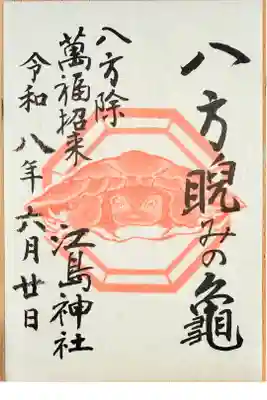 八方睨みの亀
八方除
萬福招来
江島神社
令和八年六月廿日